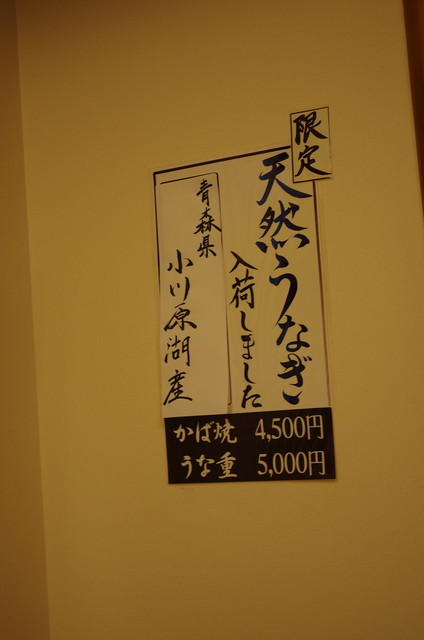 限定
天然うなぎ
入荷しました
青森県
小川原湖産
かば焼 4,500円
うな重 5,000円